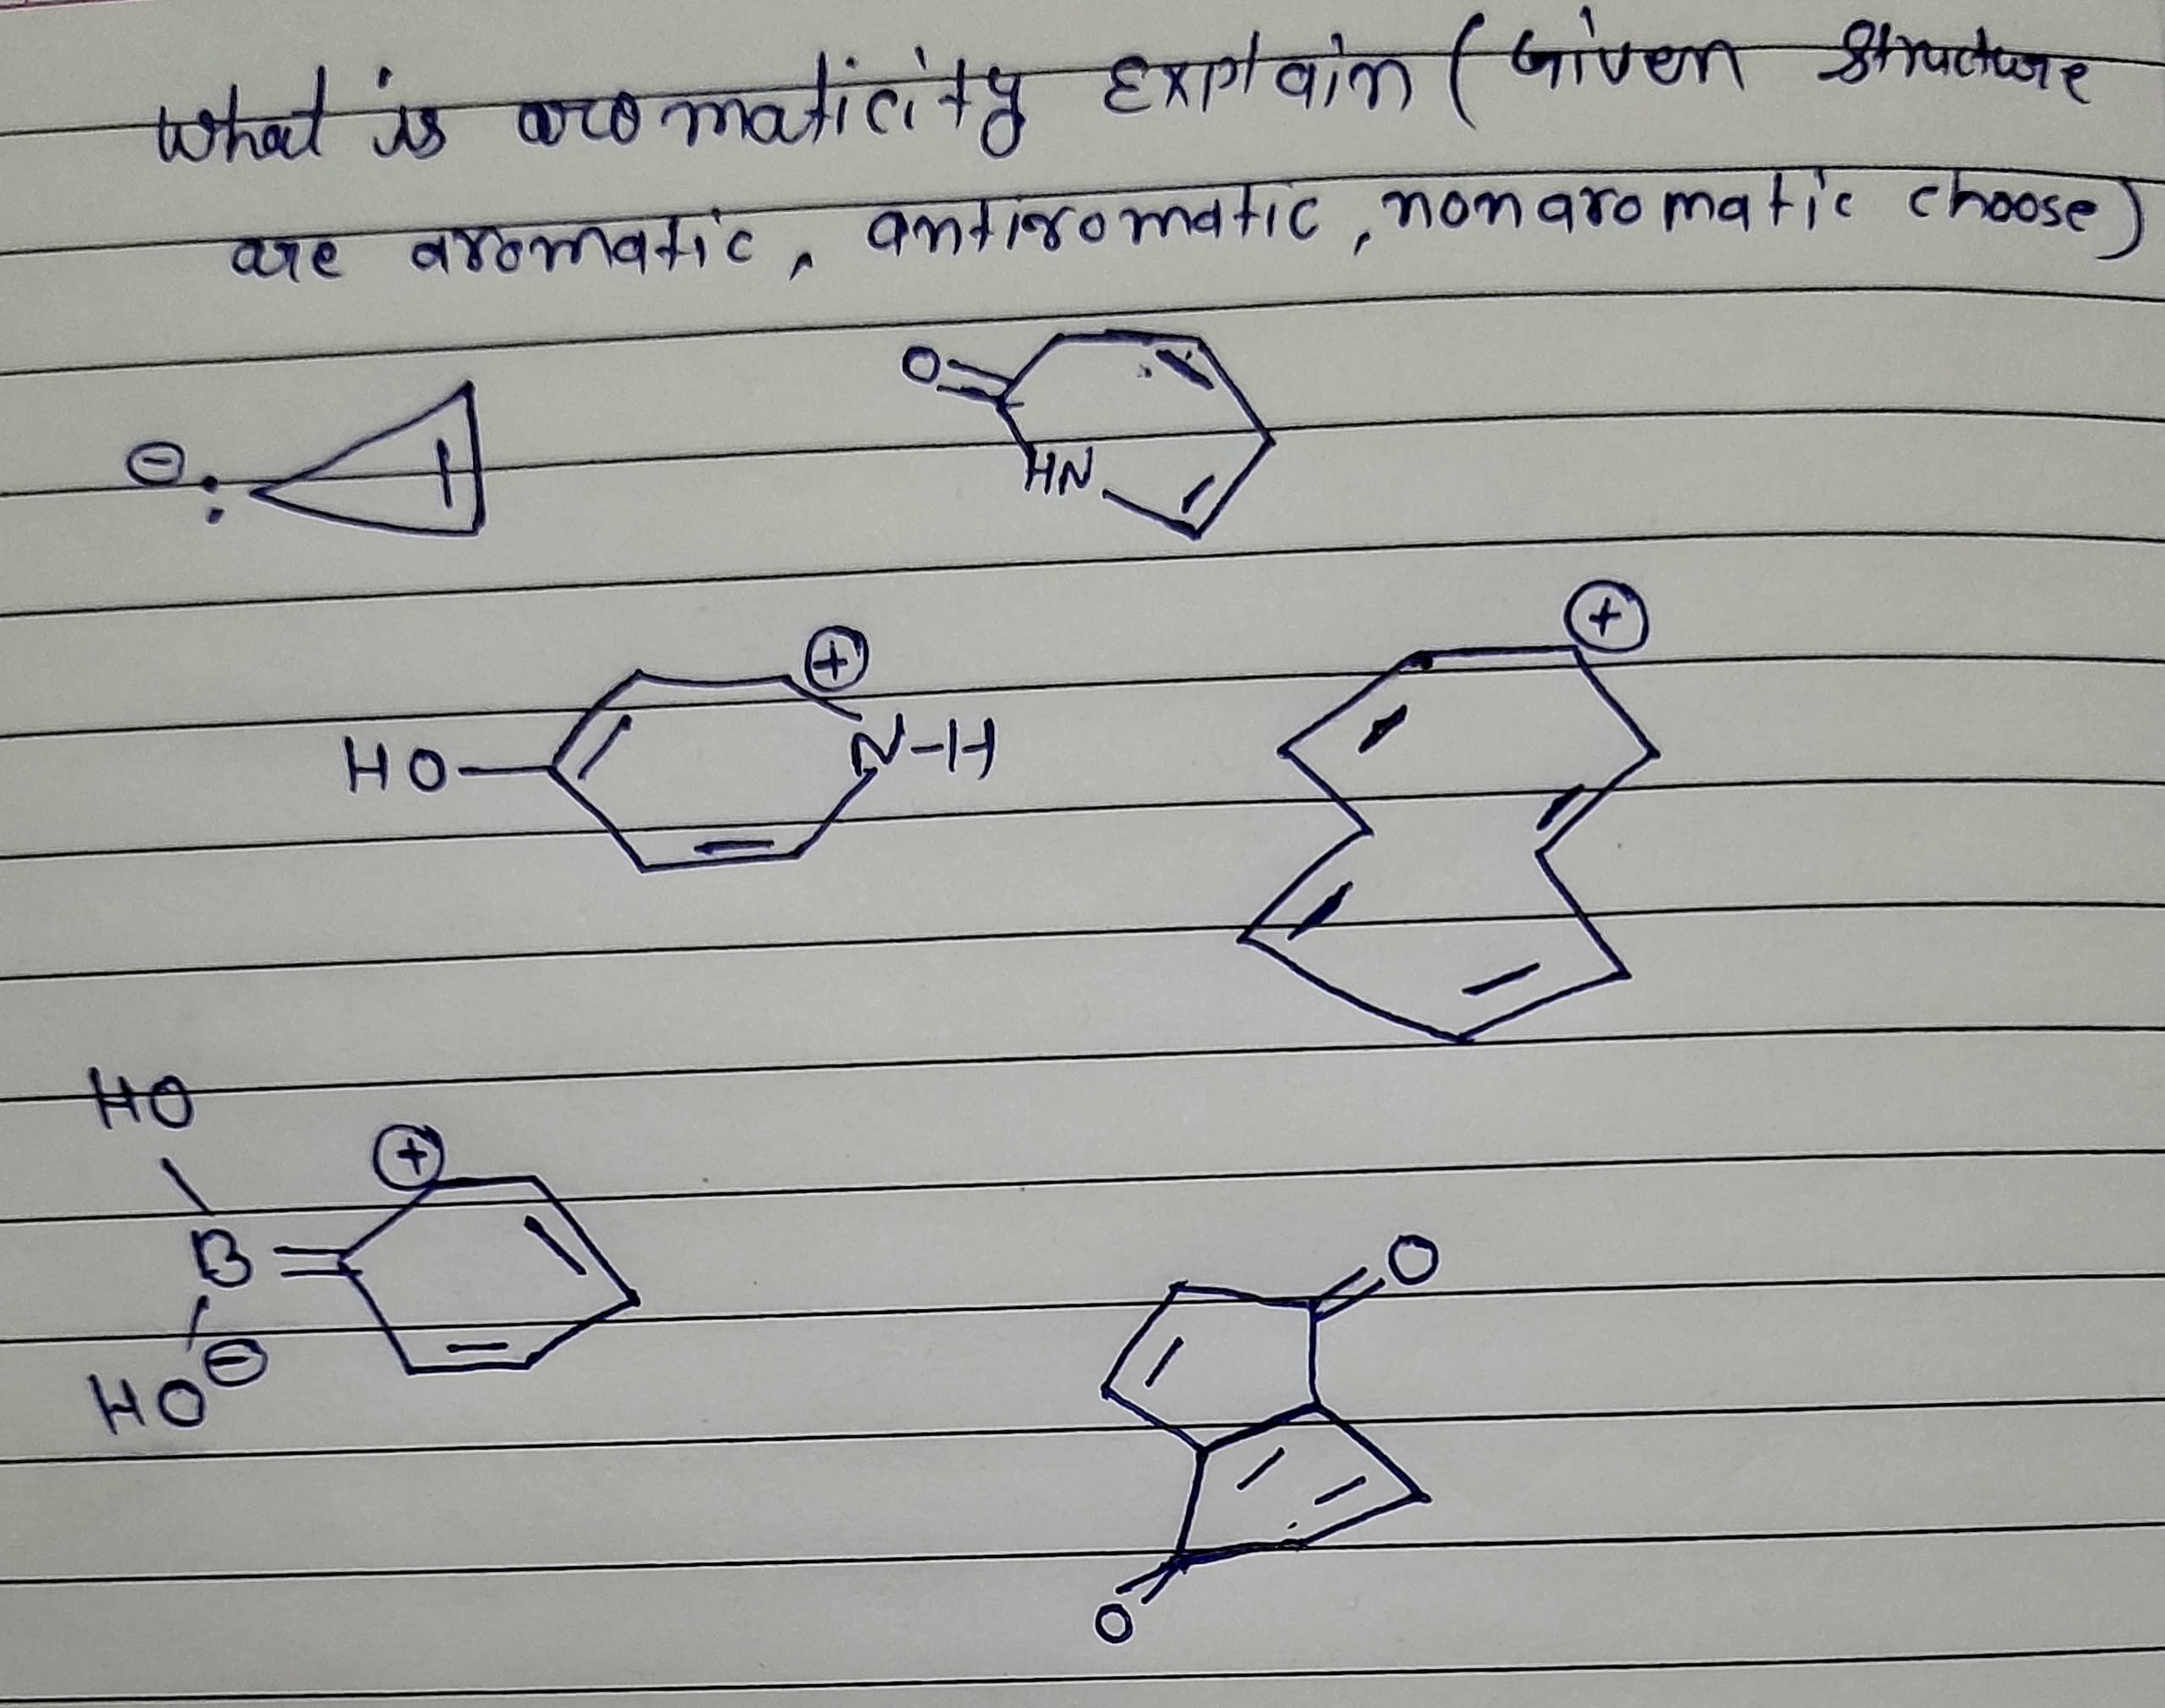 What is aromaticity Explain (Given Structure
are aromatic, antiromatic, nonaromatic choose)
O
⊖ :
HN
⊕
⊕
HO N-H
HO
⊕
B
O
HO⊖
O